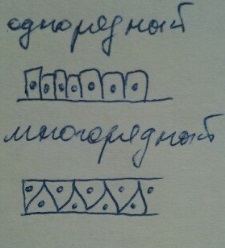 однорядный
многорядный